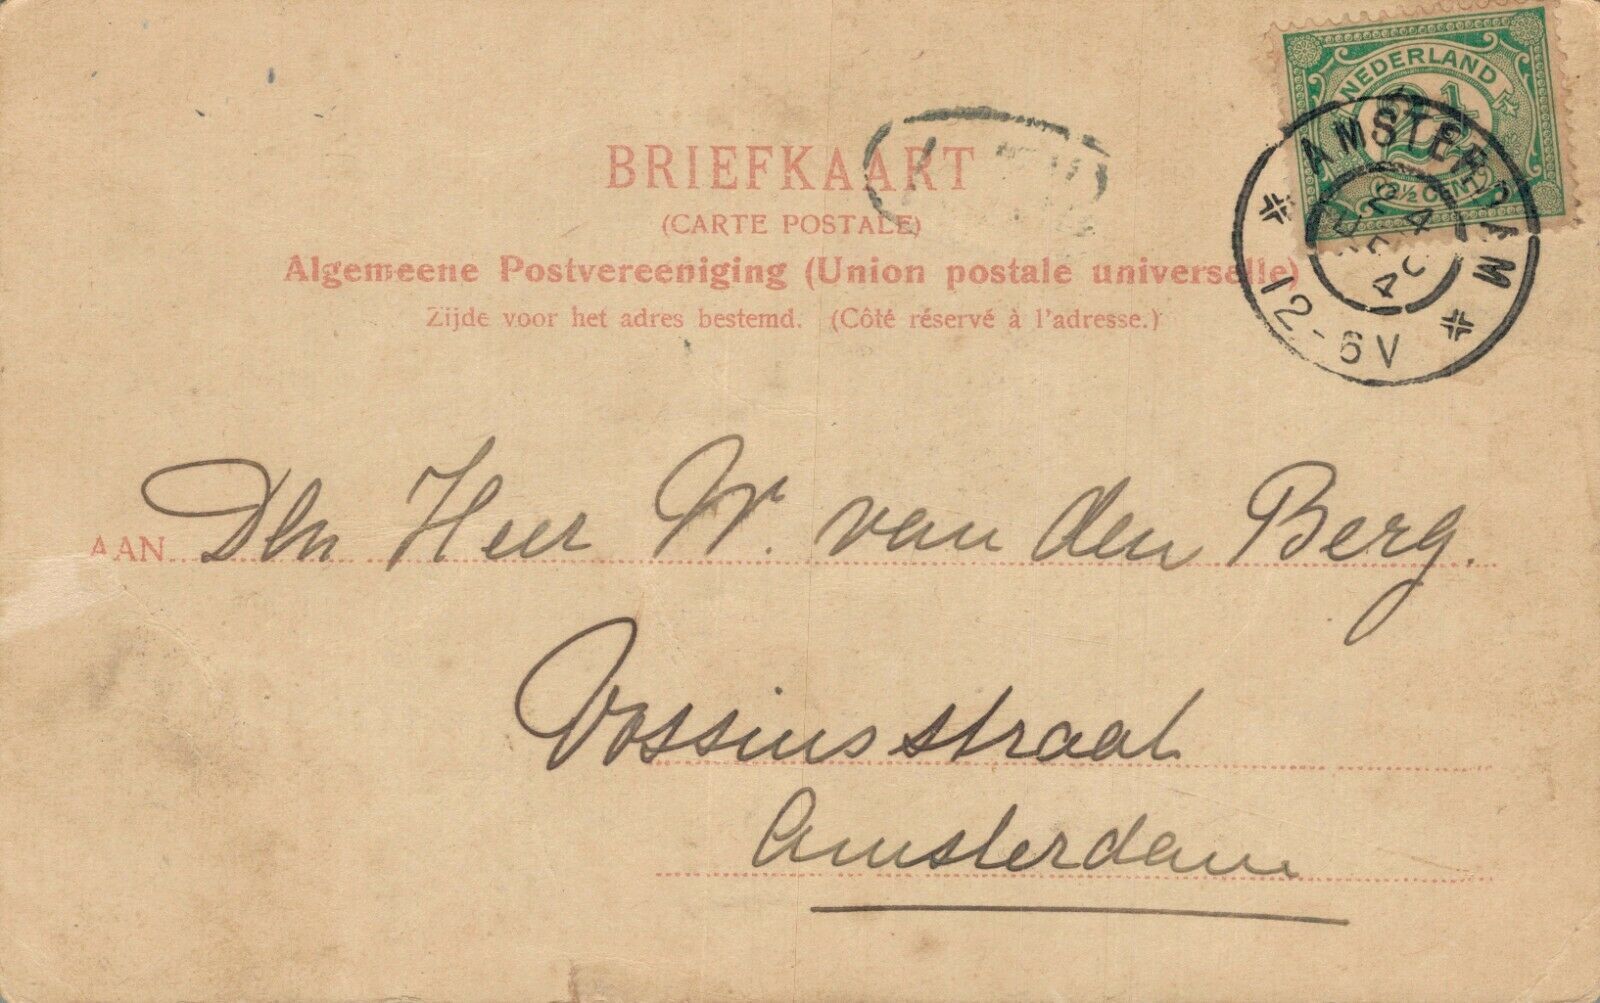 NEDERLAND
2½
2½ CENT
AMSTERDAM
24
4
12-6V
BRIEFKAART
(CARTE POSTALE)
Algemeene Postvereeniging (Union postale universelle)
Zijde voor het adres bestemd. (Côté réservé à l'adresse.)
AAN Den Heer W. van den Berg.
Vossiusstraat
Amsterdam